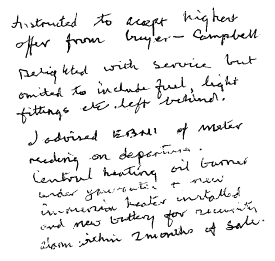 Instructed to accept highest
offer from buyer - Campbell
Delighted with service but
omitted to include fuel, light
fittings etc left behind.
I advised of meter
reading on departure.
Central heating oil burner
under guarantee + new
immersion heater installed
and new battery for security
alarm within 2 months of sale.